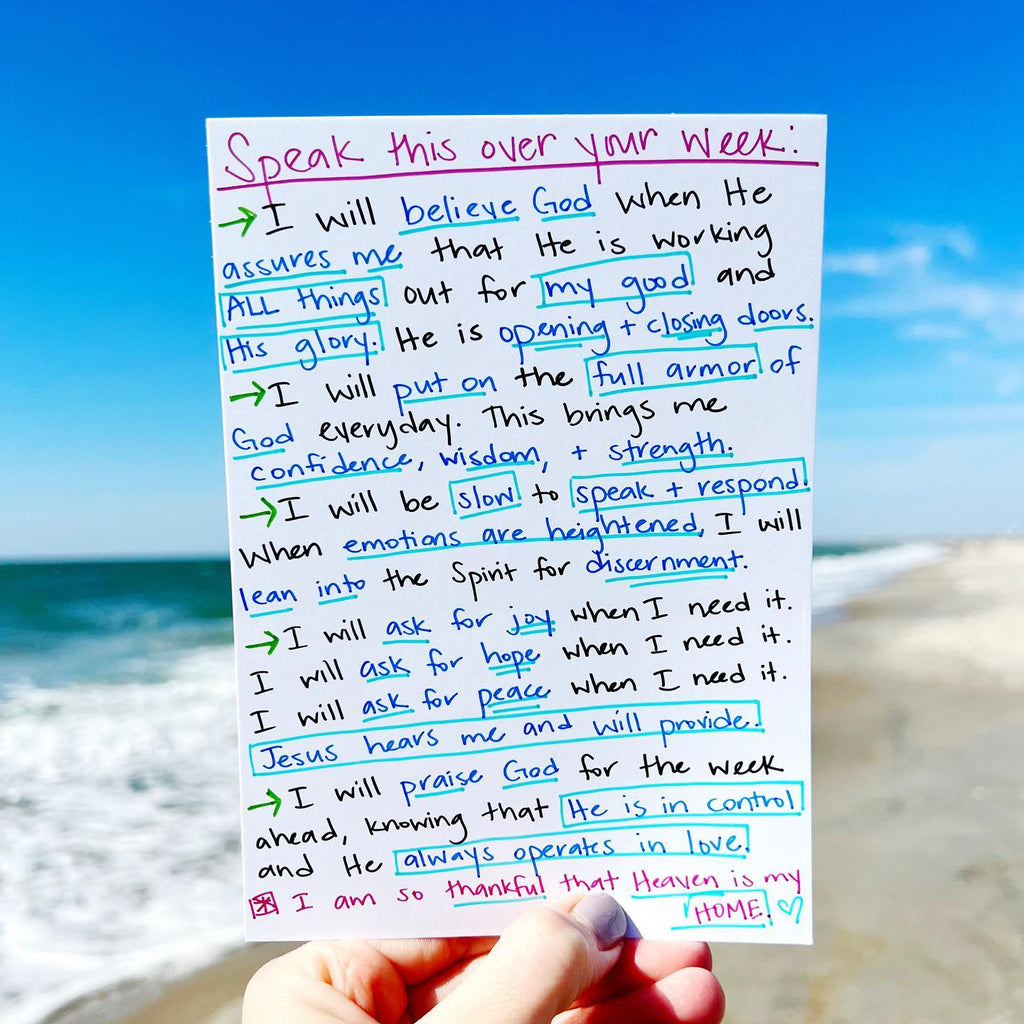 Speak this over your week:
→ I will believe God when He
assures me that He is working
ALL things out for my good and
His glory. He is opening + closing doors.
→ I will put on the full armor of
God everyday. This brings me
confidence, wisdom, + strength.
→ I will be slow to speak + respond.
When emotions are heightened, I will
lean into the Spirit for discernment.
→ I will ask for joy when I need it.
I will ask for hope when I need it.
I will ask for peace when I need it.
Jesus hears me and will provide.
→ I will praise God for the week
ahead, knowing that He is in control
and He always operates in love.
I am so thankful that Heaven is my
HOME. ♡